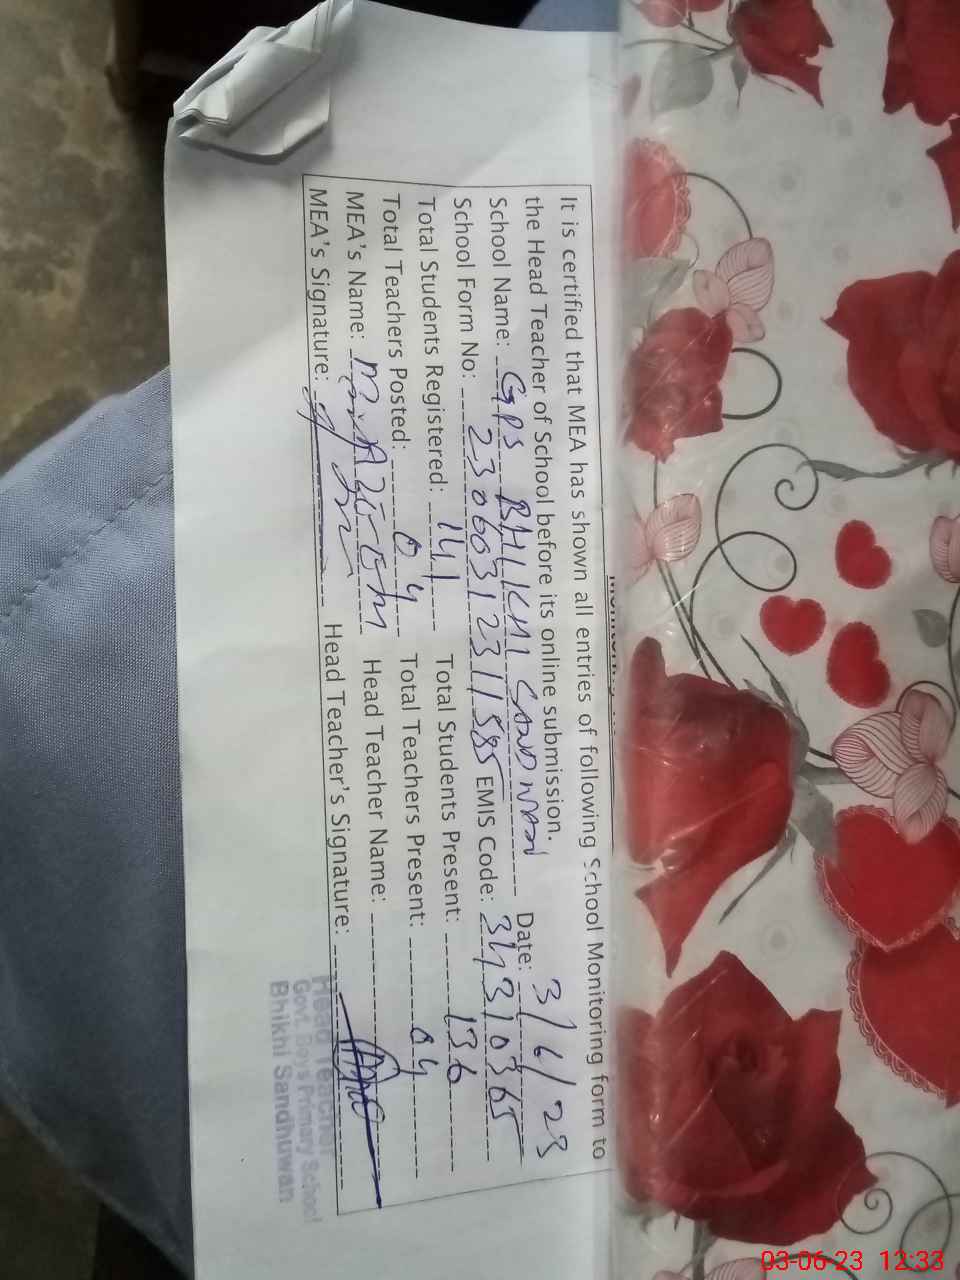 It is certified that MEA has shown all entries of following School Monitoring form to
the Head Teacher of School before its online submission.
School Name: GPS BHIKHI SANDWAN Date: 3/6/23
School Form No: EMIS Code: 34310365
Total Students Registered: 141 Total Students Present: 136
Total Teachers Posted: 04 Total Teachers Present: 04
MEA's Name: Head Teacher Name:
MEA's Signature: Head Teacher's Signature:
Head Teacher
Govt. Boys Primary School
Bhikhi Sandhuwan
03-06-23 12:33